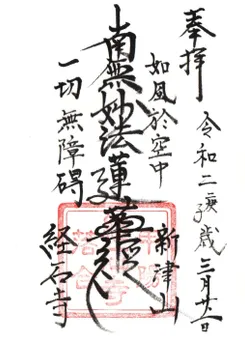 奉拝
令和二庚歳三月廿一日
如風於空中
新津山
南無妙法蓮華経
一切無障碍
経石寺